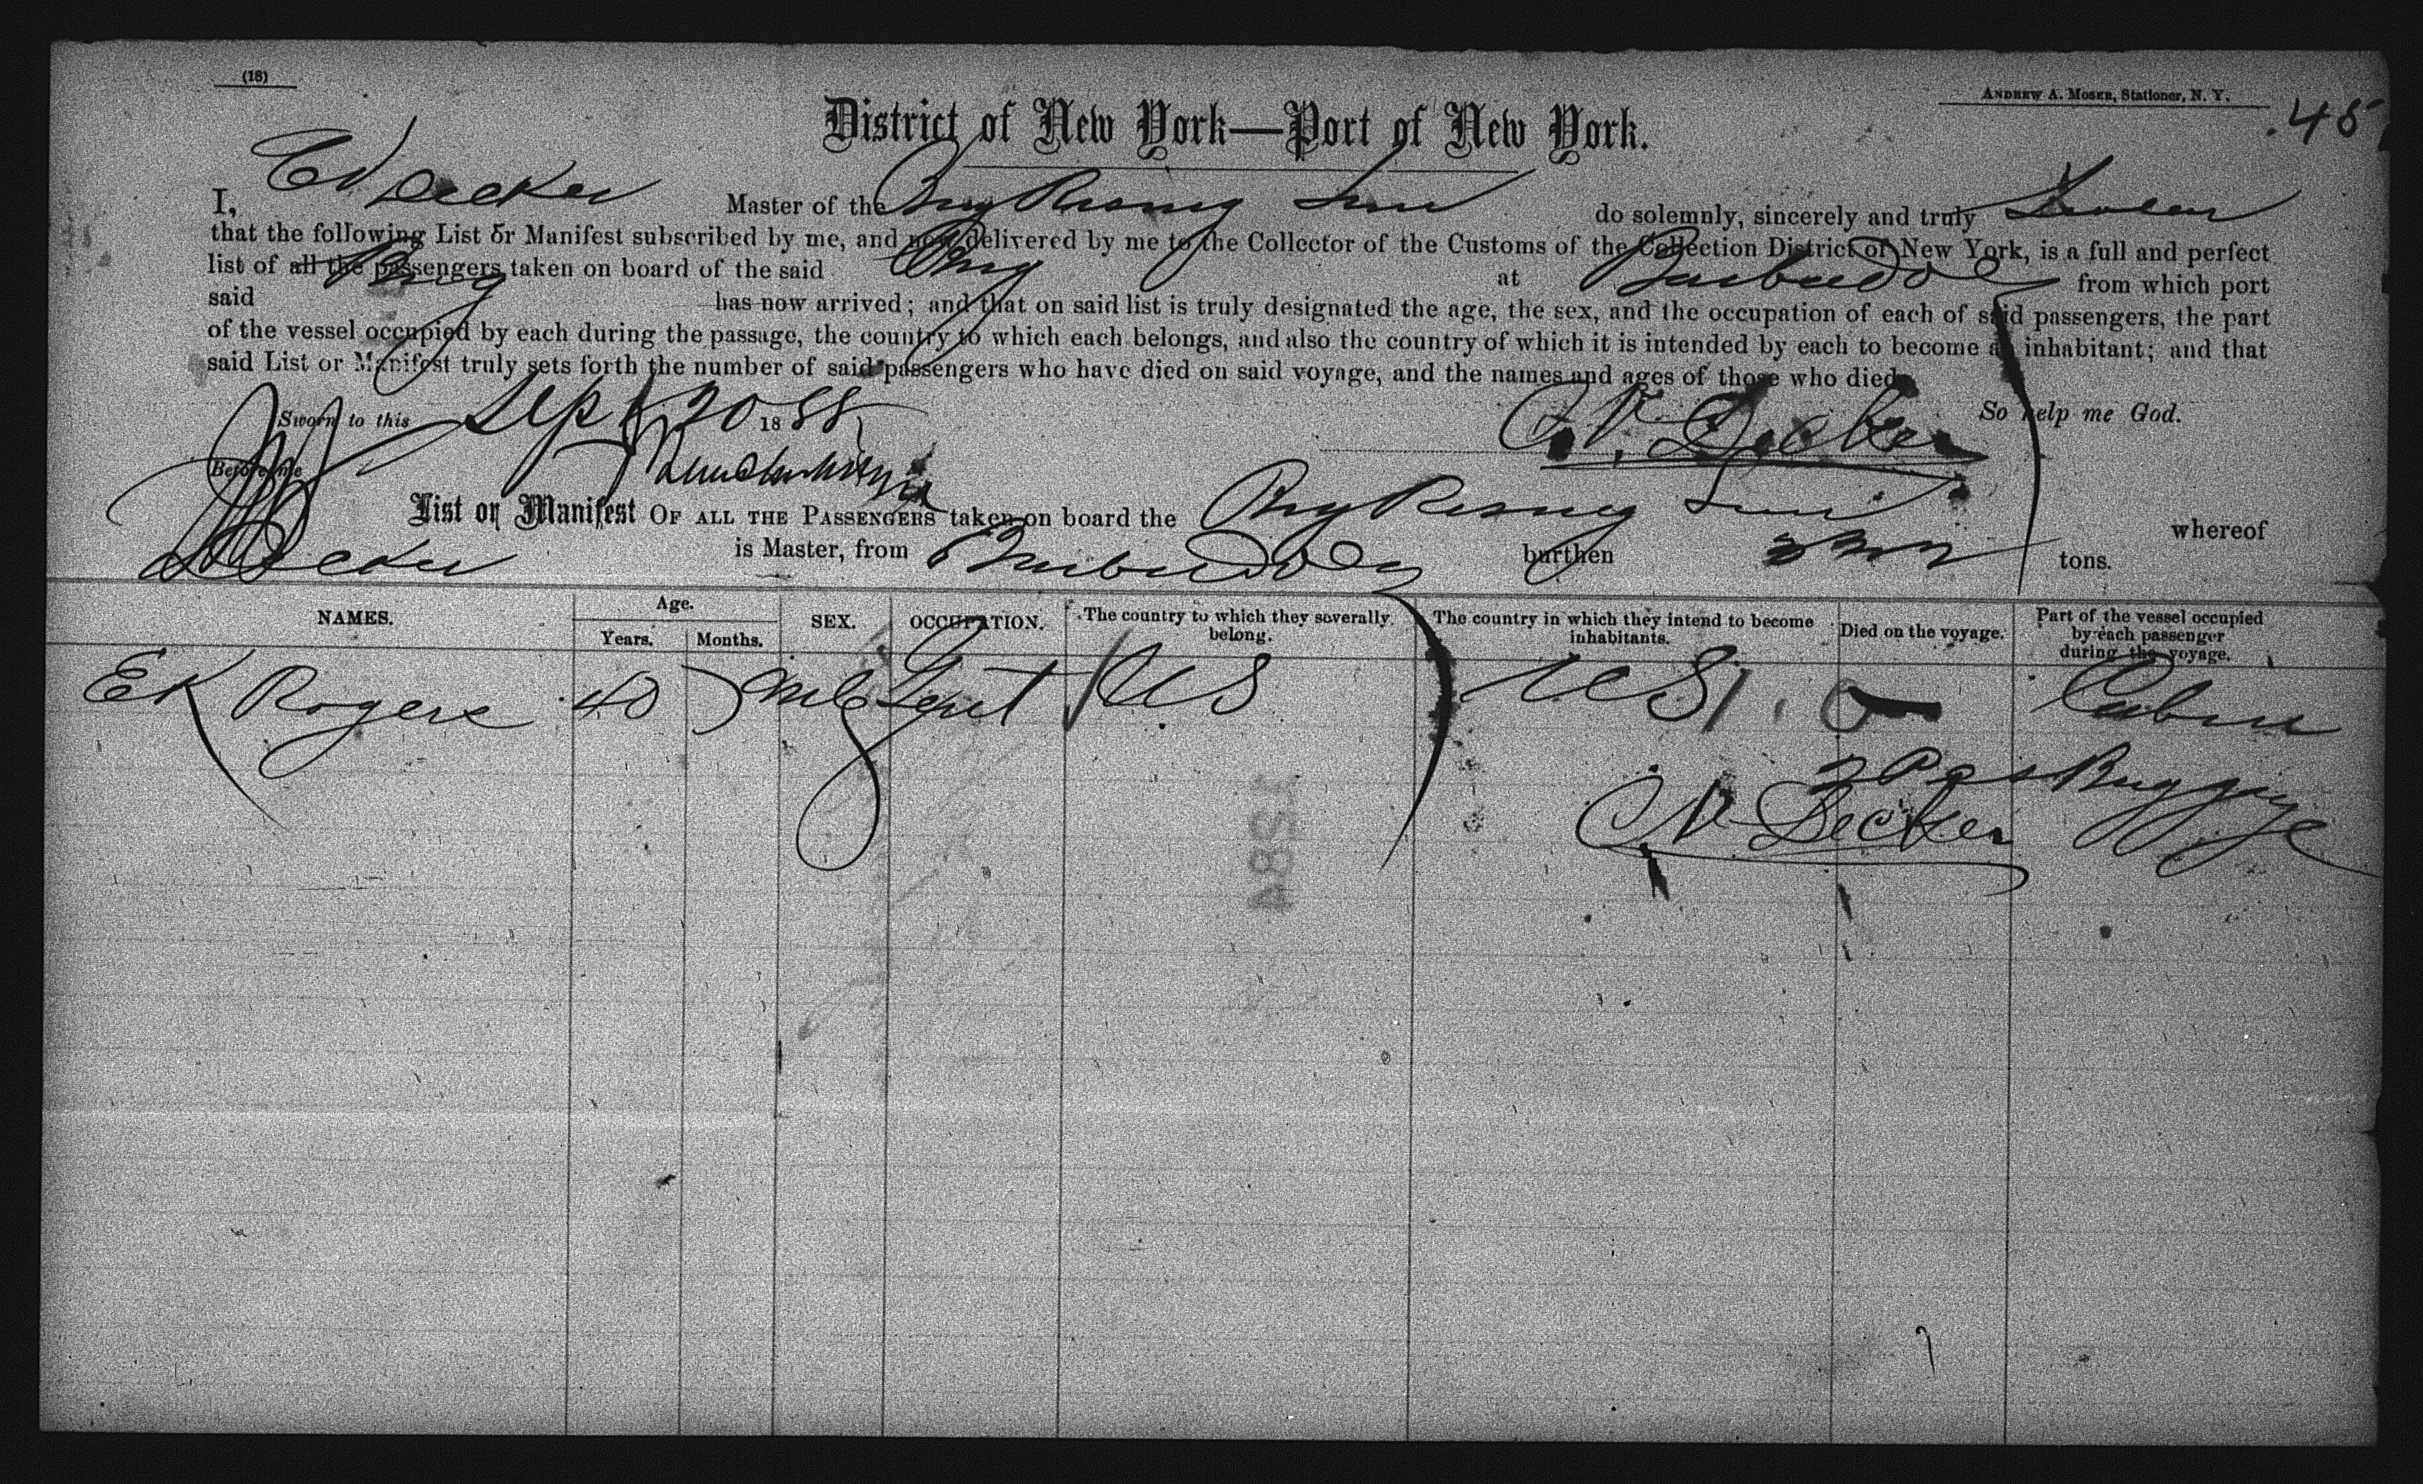 (18)
ANDREW A. MOSER, Stationer, N. Y.
48
District of New York—Port of New York.
I, Decker Master of the Brig Rising Sun do solemnly, sincerely and truly Swear
that the following List or Manifest subscribed by me, and now delivered by me to the Collector of the Customs of the Collection District of New York, is a full and perfect
list of all the passengers taken on board of the said Brig at Barbadoes from which port
said Brig has now arrived; and that on said list is truly designated the age, the sex, and the occupation of each of said passengers, the part
of the vessel occupied by each during the passage, the country to which each belongs, and also the country of which it is intended by each to become an inhabitant; and that
said List or Manifest truly sets forth the number of said passengers who have died on said voyage, and the names and ages of those who died.
Sworn to this Sept 20 1888 So help me God.
Before me Decker
List or Manifest OF ALL THE PASSENGERS taken on board the Brig Rising Sun whereof
Decker is Master, from Barbadoes burthen tons.
NAMES. Age. Years. Months. SEX. OCCUPATION. The country to which they severally belong. The country in which they intend to become inhabitants. Died on the voyage. Part of the vessel occupied by each passenger during the voyage.
E K Rogers 40 Gent US US Cabin
2 Pgs Baggage
Decker
1284